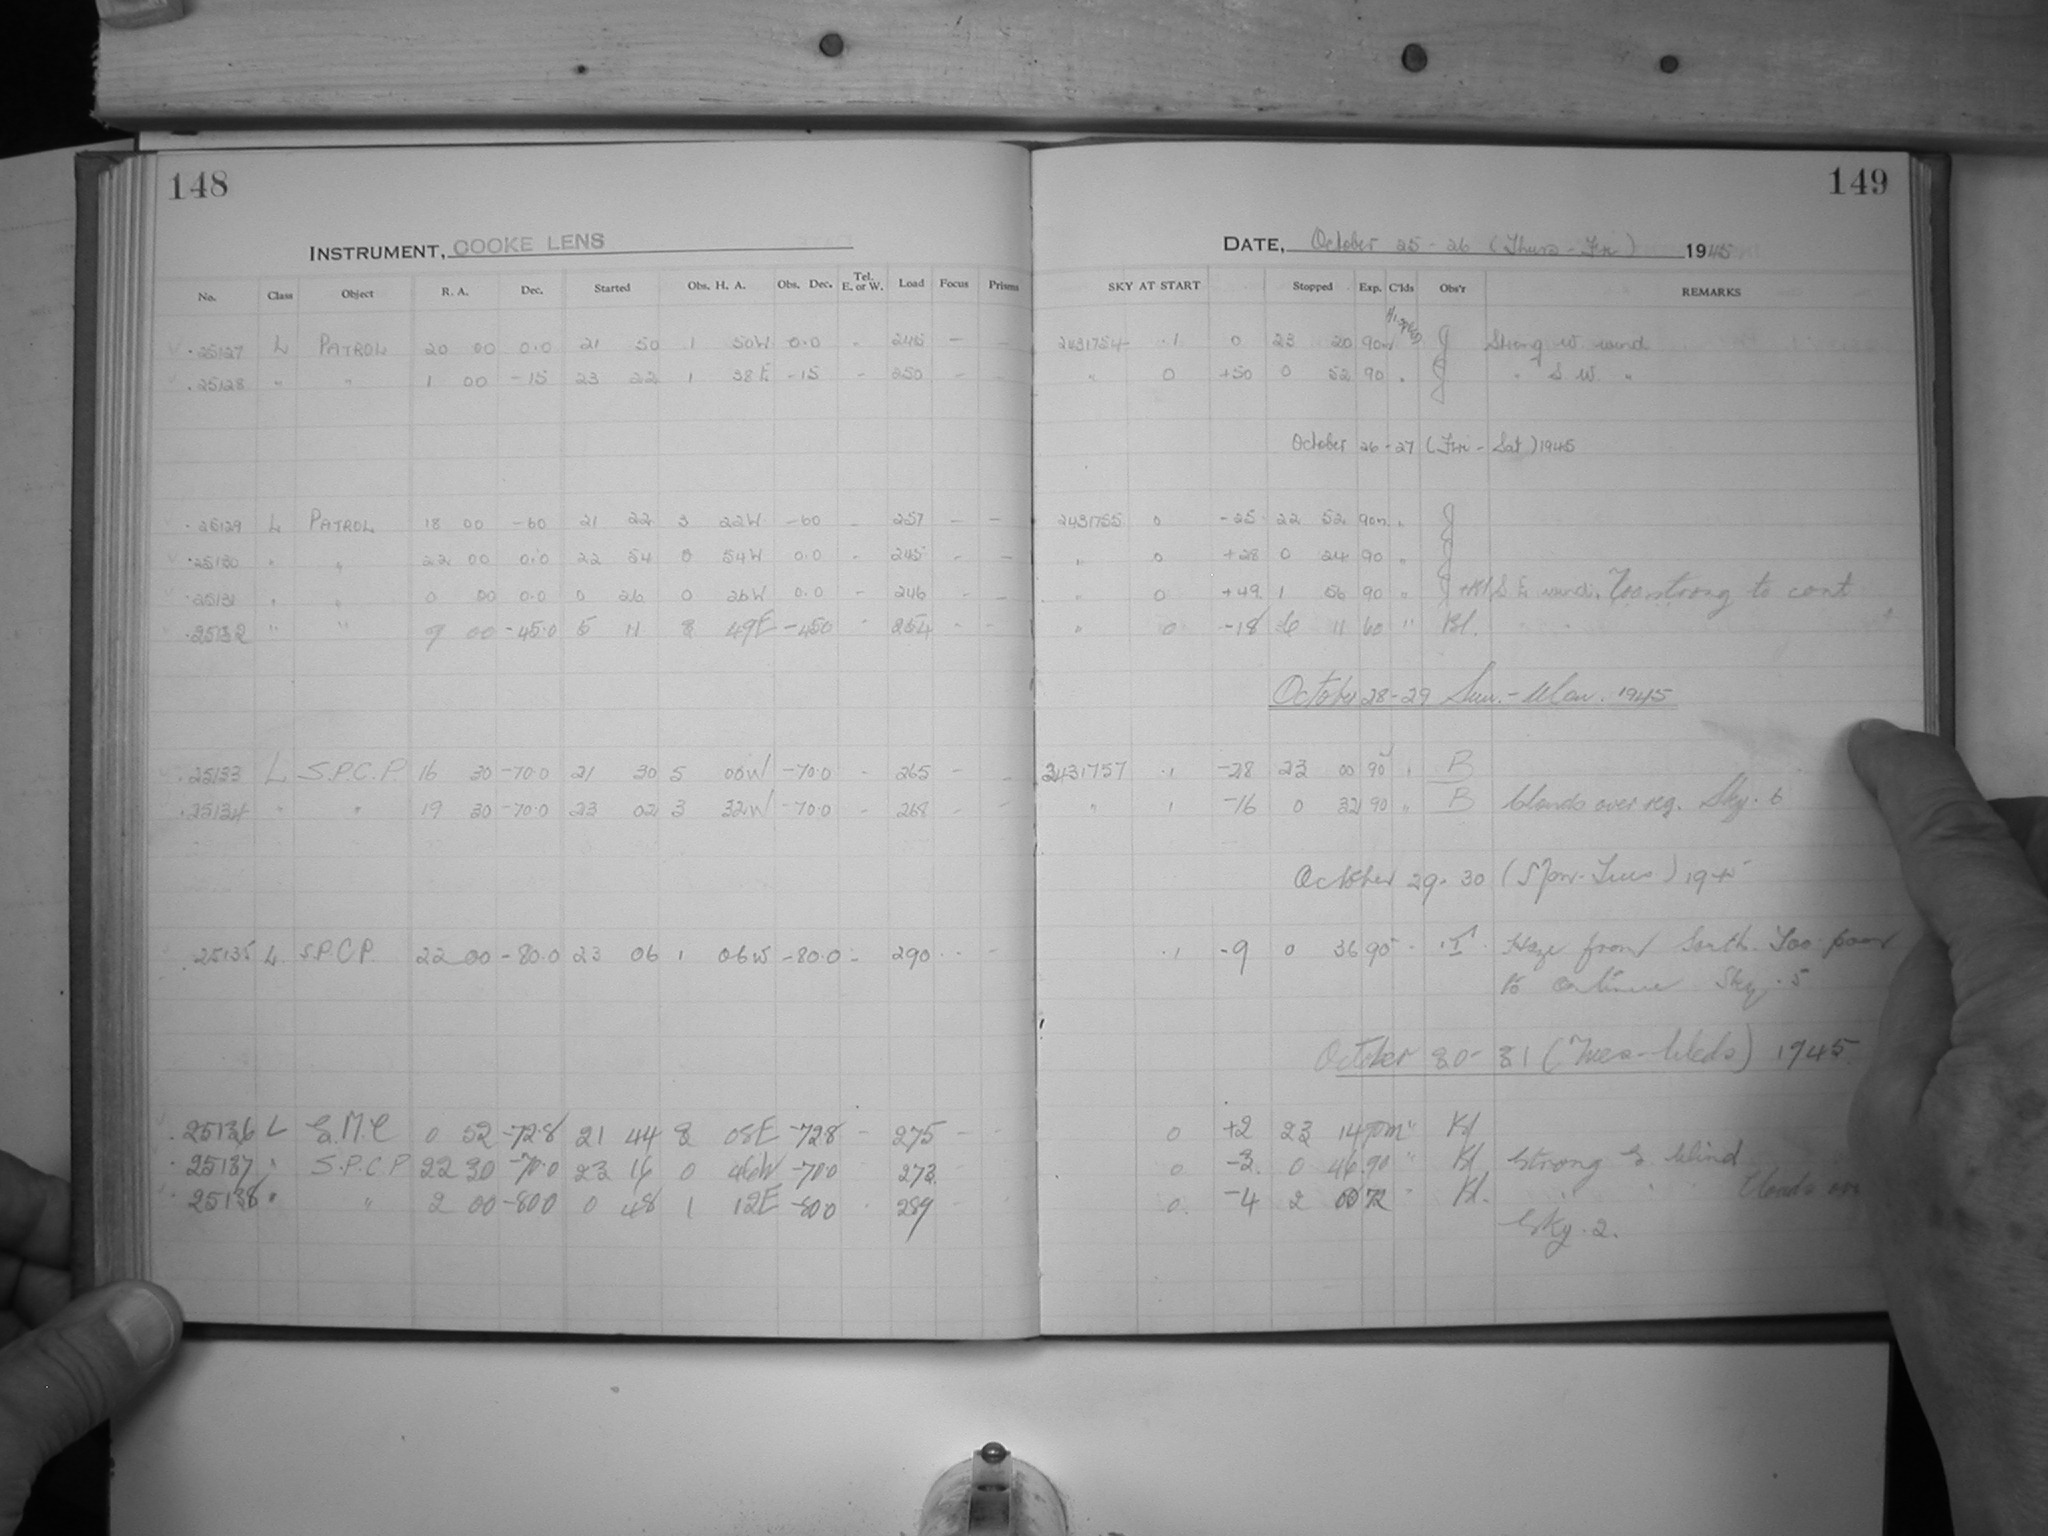 148
INSTRUMENT, COOKE LENS
No. Class Object R. A. Dec. Started Obs. H. A. Obs. Dec. Tel. E. or W. Load Focus Prisms
25127 L PATROL 20 00 0.0 21 50 1 50W 0.0 - 246 - -
25128 " " 1 00 -15 23 22 1 38E -15 - 250 - -
25129 L PATROL 18 00 -60 21 22 3 22W -60 - 257 - -
25130 " " 22 00 0.0 22 54 0 54W 0.0 - 245 - -
25131 " " 0 00 0.0 0 26 0 26W 0.0 - 246 - -
25132 " " 9 00 -45.0 5 11 8 49E -450 - 254 - -
25133 L S.P.C.P. 16 30 -70.0 21 30 5 00W -70.0 - 265 - -
25134 " " 19 30 -70.0 23 02 3 32W -70.0 - 268 - -
25135 L S.P.C.P. 22 00 -80.0 23 06 1 06W -80.0 - 290 - -
25136 L S.M.C 0 52 -72.8 21 44 3 08E -728 - 275 - -
25137 " S.P.C.P 22 30 -70.0 23 16 0 46W -700 273 -
25138 " " 2 00 -800 0 48 1 12E -800 289
149
DATE, October 25-26 (Thurs-Fri) 1945
SKY AT START Stopped Exp. C'lds Obs'r REMARKS
2431754 .1 0 23 20 90m J Strong W wind
" 0 +50 0 52 90 " J " S.W. "
October 26-27 (Fri-Sat) 1945
2431755 0 -25 22 52 90m " J
" 0 +28 0 24 90 " J
" 0 +49 1 56 90 " J+Kl S E wind. Too strong to cont
" 0 -18 6 11 60 " Kl.
October 28-29 Sun.-Mon. 1945
2431757 .1 -28 23 00 90 " B
" 1 -16 0 32 90 " B Clouds over reg. Sky. 6
October 29-30 (Mon-Tues) 194
.1 -9 0 36 90 Haze from South. Too poor
to continue Sky .5
October 30-31 (Tues-Weds) 1945
0 +2 23 14 90m " Kl
0 -3 0 46 90 " Kl Strong S. Wind
0 -4 2 00 72 " Kl. " " Clouds
Sky .2.